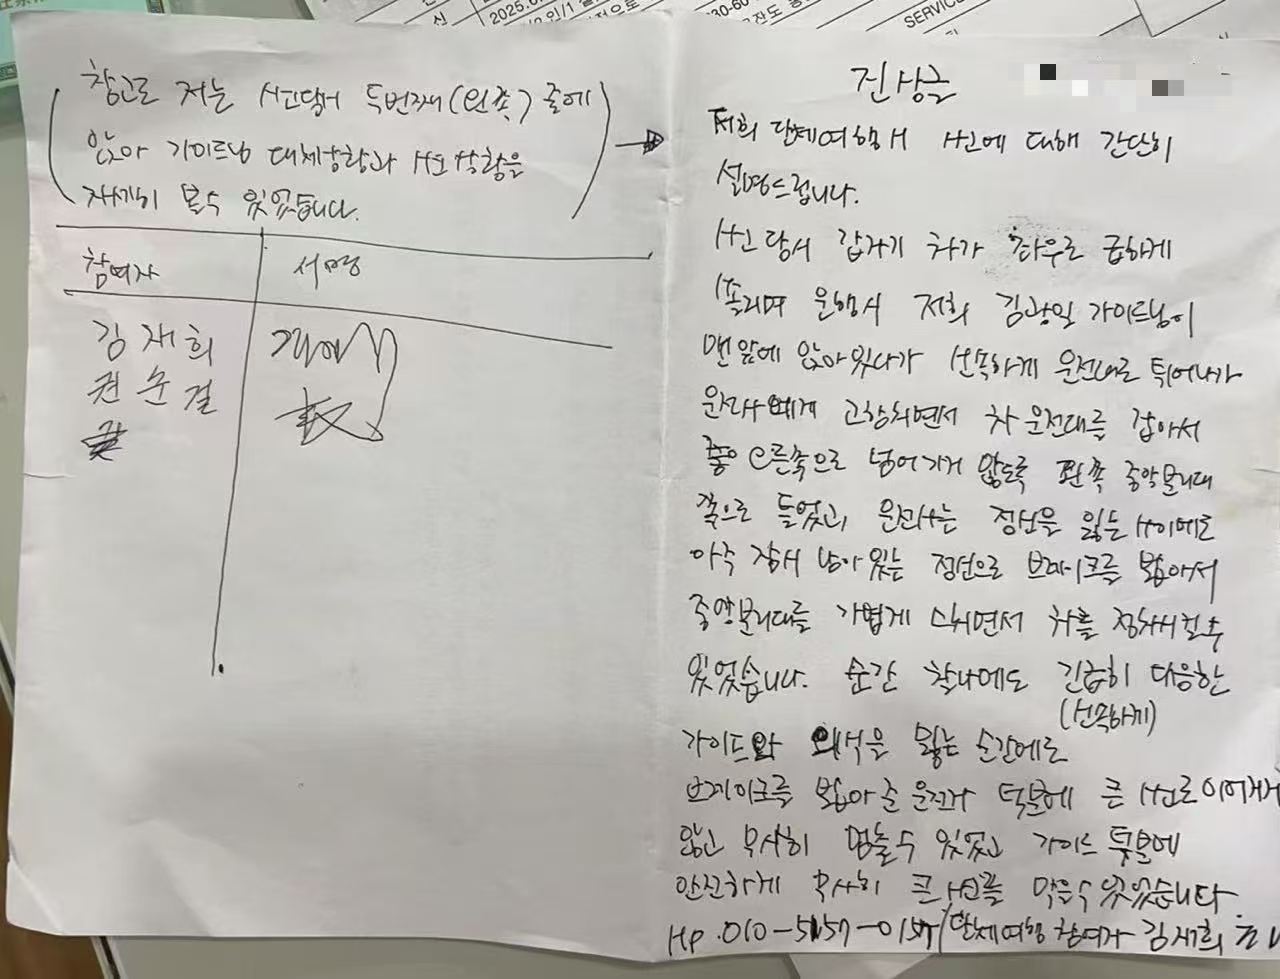 신
2025.0
30-60
SERVIC
참고로 저는 사고당시 두번째(왼쪽) 줄에
앉아 가이드님 대체상황과 사고상황을
자세히 볼수 있었습니다.
참여자 서명
김재희
권순결
진상글
저희 단체여행시 사고에 대해 간단히
설명드립니다.
사고당시 갑자기 차가 좌우로 급하게
쏠리며 운행시 저희 김광일 가이드님이
맨앞에 앉아있다가 신속하게 운전대로 튀어나가
운전사에게 고함치면서 차 운전대를 잡아서
오른쪽으로 넘어가지 않도록 왼쪽 중앙분리대
쪽으로 틀었고, 운전사는 정신을 잃는 사이에도
아주 잠시 남아있는 정신으로 브레이크를 밟아서
중앙분리대를 가볍게 스치면서 차를 정차시킬수
있었습니다. 순간 찰나에도 긴급히 대응한
(신속하게)
가이드와 의식을 잃는 순간에도
브레이크를 밟아준 운전사 덕분에 큰 사고로 이어지지
않고 무사히 멈출수 있었고 가이드 덕분에
안전하게 무사히 큰사고를 막을수있었습니다.
Hp.010-5157-0157/단체여행 참여자 김재희